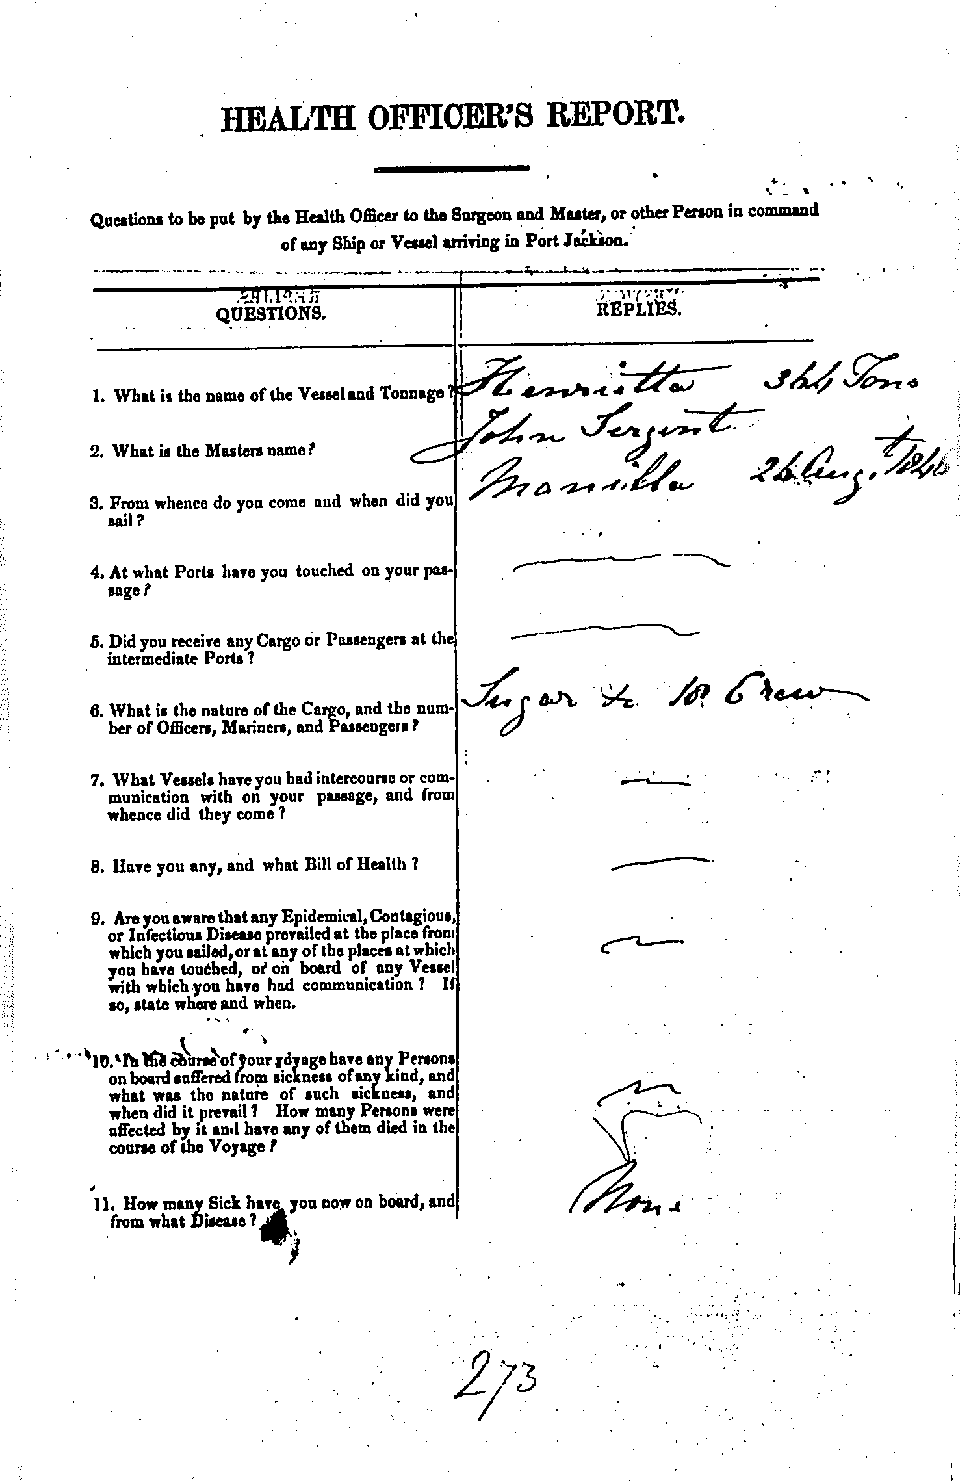 HEALTH OFFICER'S REPORT.
Questions to be put by the Health Officer to the Surgeon and Master, or other Person in command
of any Ship or Vessel arriving in Port Jackson.
QUESTIONS.
REPLIES.
1. What is the name of the Vessel and Tonnage?
Henrietta 344 Tons
2. What is the Masters name?
John Sergent
3. From whence do you come and when did you
sail?
Manilla Augt
4. At what Ports have you touched on your pas-
sage?
5. Did you receive any Cargo or Passengers at the
intermediate Ports?
6. What is the nature of the Cargo, and the num-
ber of Officers, Mariners, and Passengers?
Sugar &c Crew
7. What Vessels have you had intercourse or com-
munication with on your passage, and from
whence did they come?
8. Have you any, and what Bill of Health?
9. Are you aware that any Epidemical, Contagious,
or Infectious Disease prevailed at the place from
which you sailed, or at any of the places at which
you have touched, or on board of any Vessel
with which you have had communication? If
so, state where and when.
10. In the course of your voyage have any Persons
on board suffered from sickness of any kind, and
what was the nature of such sickness, and
when did it prevail? How many Persons were
affected by it and have any of them died in the
course of the Voyage?
11. How many Sick have you now on board, and
from what Disease?
None
273